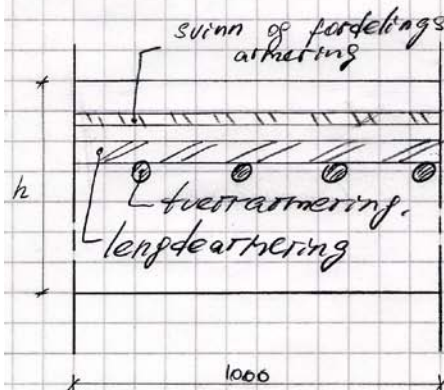 svinn og fordelings
armering
h
tverrarmering.
lengdearmering
1000